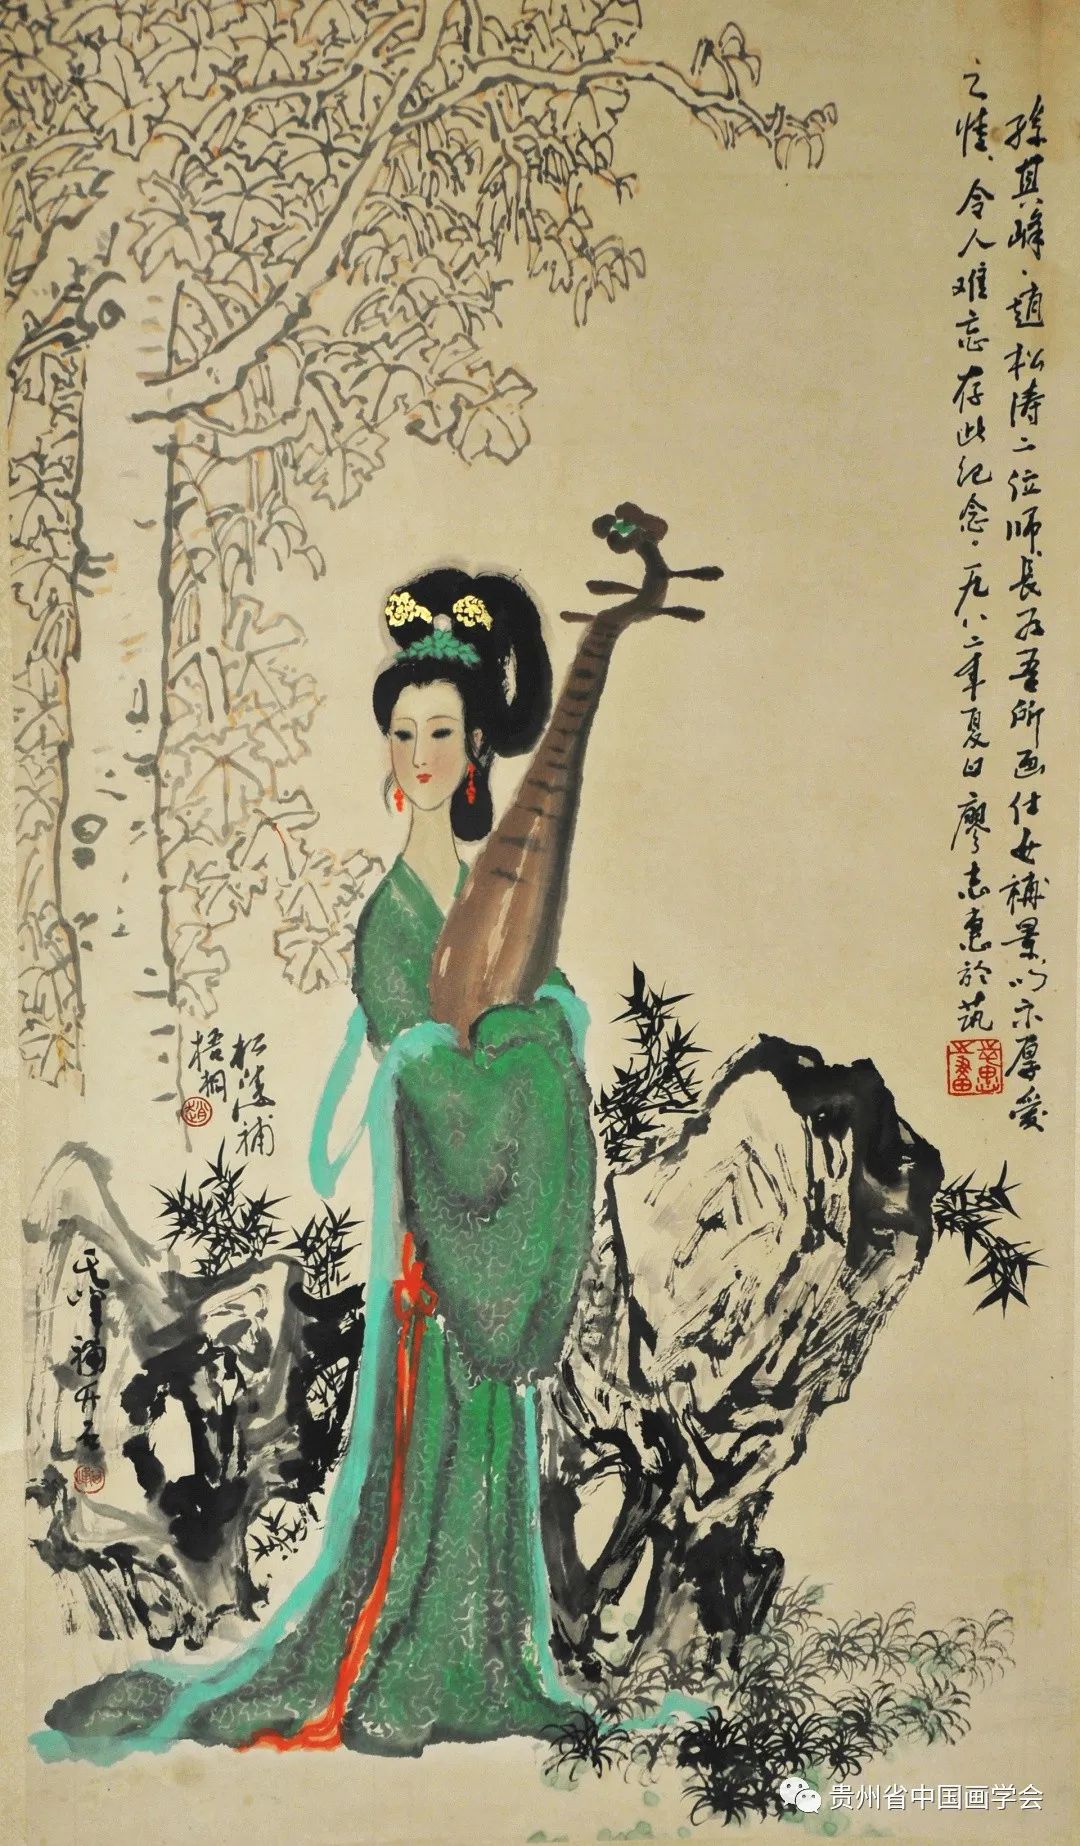 孫其峰、趙松涛二位师長为吾所画仕女補景，以示厚爱
之情、令人难忘存此纪念。一九八二年夏日廖志惠於筑
松涛補
梧桐
其峰補竹石
贵州省中国画学会